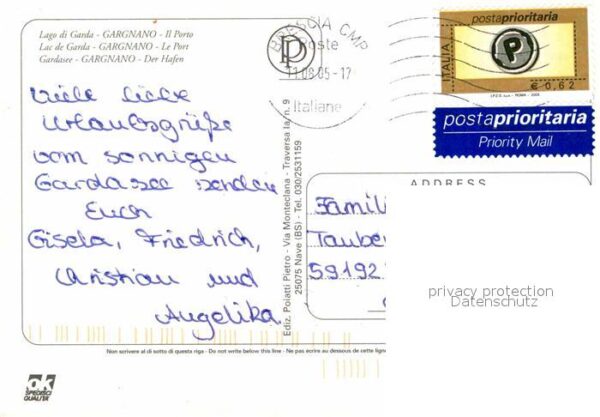 Lago di Garda - GARGNANO - Il Porto
Lac de Garda - GARGNANO - Le Port
Gardasee - GARGNANO - Der Hafen
Viele liebe
Urlaubsgrüße
vom sonnigen
Gardasee senden
Euch
Gisela, Friedrich,
Christian und
Angelika
Ediz. Poiatti Pietro - Via Monteclana - Traversa Ia, n. 9
25075 Nave (BS) - Tel. 030/2531159
BRESCIA CMP
P
Poste
11.08.05-17
Italiane
postaprioritaria
ITALIA
P
€ 0,62
postaprioritaria
Priority Mail
ADDRESS
Famili
Tauben
59192
privacy protection
Datenschutz
Non scrivere al di sotto di questa riga - Do not write below this line - Ne pas écrire au dessous de cette ligne
ok
SPEDISCI
QUALITÀ